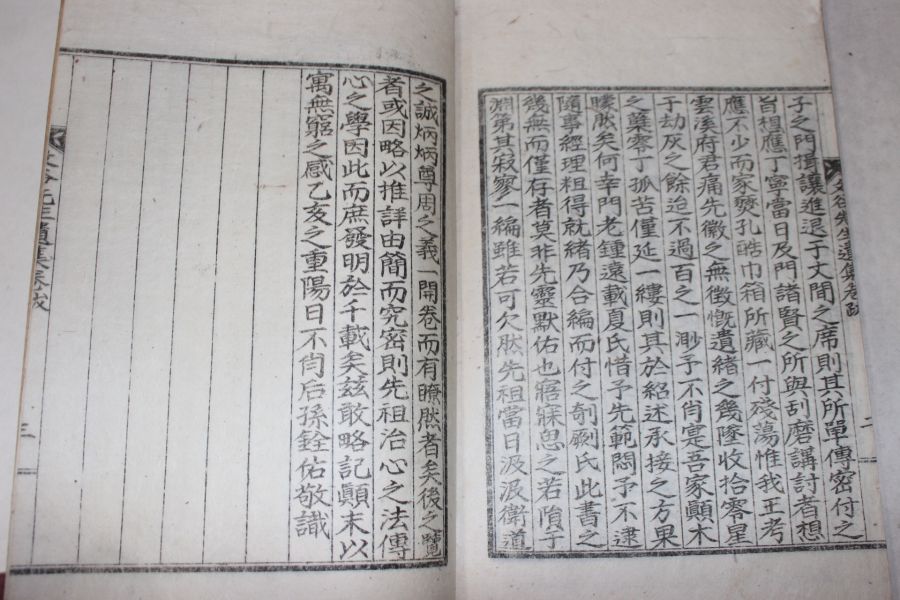 子之門揖讓進退于丈間之席則其所單傳密付之
旨想應丁寧當日及門諸賢之所與刮磨講討者想
應不少而家燹孔酷巾箱所藏一付殘蕩惟我王考
雲溪府君痛先徽之無徴慨遺緒之幾墜收拾零星
于劫灰之餘迨不過百之一眇予不肖寔吾家顚木
之蘖零丁孤苦僅延一縷則其於紹述承接之方果
矇然矣何幸門老鍾遠載夏氏惜予先範悶予不逮
隨事經理粗得就緖乃合編而付之剞劂氏此書之
幾無而僅存者莫非先靈默佑也寤寐思之若隕于
淵第其寂寥一編雖若可欠然先祖當日汲汲衛道
之誠炳炳尊周之義一開卷而有瞭然者矣後之覽
者或因略以推詳由簡而究密則先祖治心之法傳
心之學因此而庶發明於千載矣玆敢略記顚末以
寓無窮之感乙亥之重陽日不肖后孫銓佑敬識
谷先生遺集卷跋
二
谷先生遺集卷跋
三